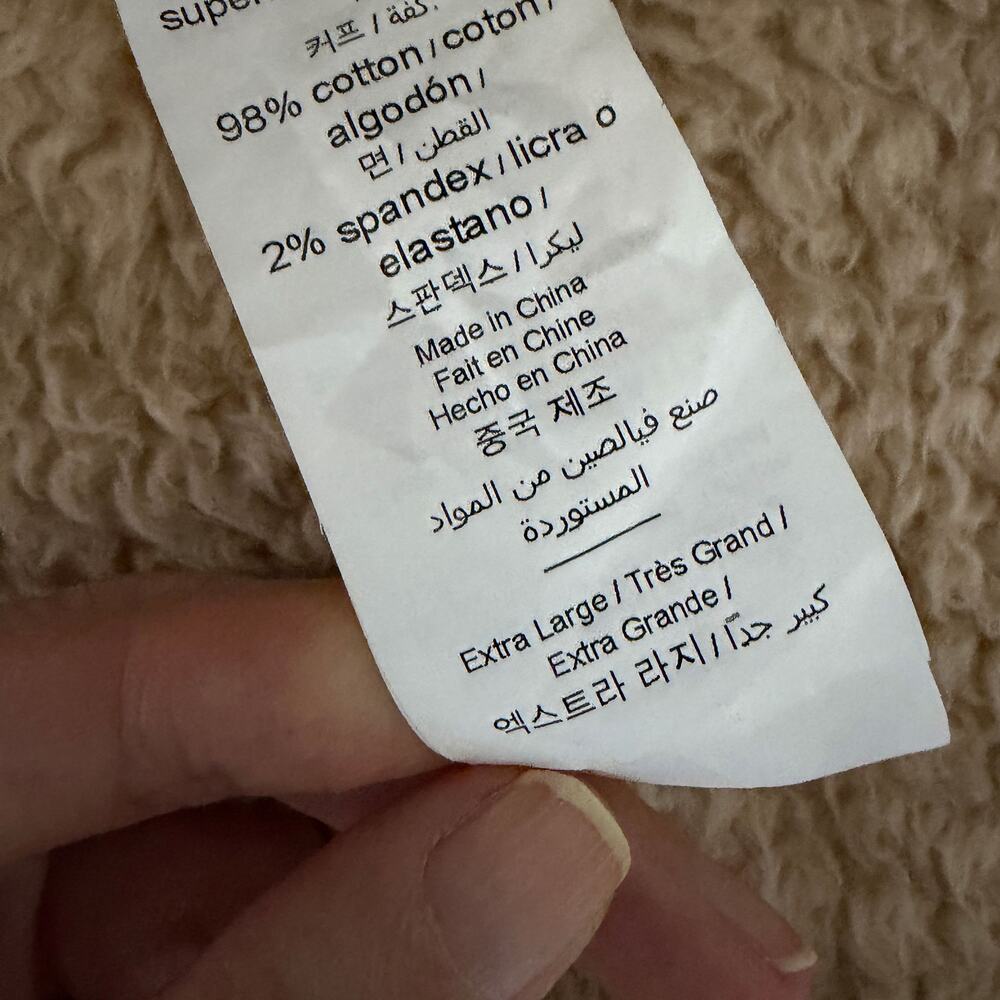 커프 / كفة.
98% cotton / coton /
algodón /
면 / القطن
2% spandex / licra o
elastano /
스판덱스 / ليكرا
Made in China
Fait en Chine
Hecho en China
중국 제조
صنع فيالصين من المواد
المستوردة
Extra Large / Très Grand /
Extra Grande /
엑스트라 라지 / كبير جداً